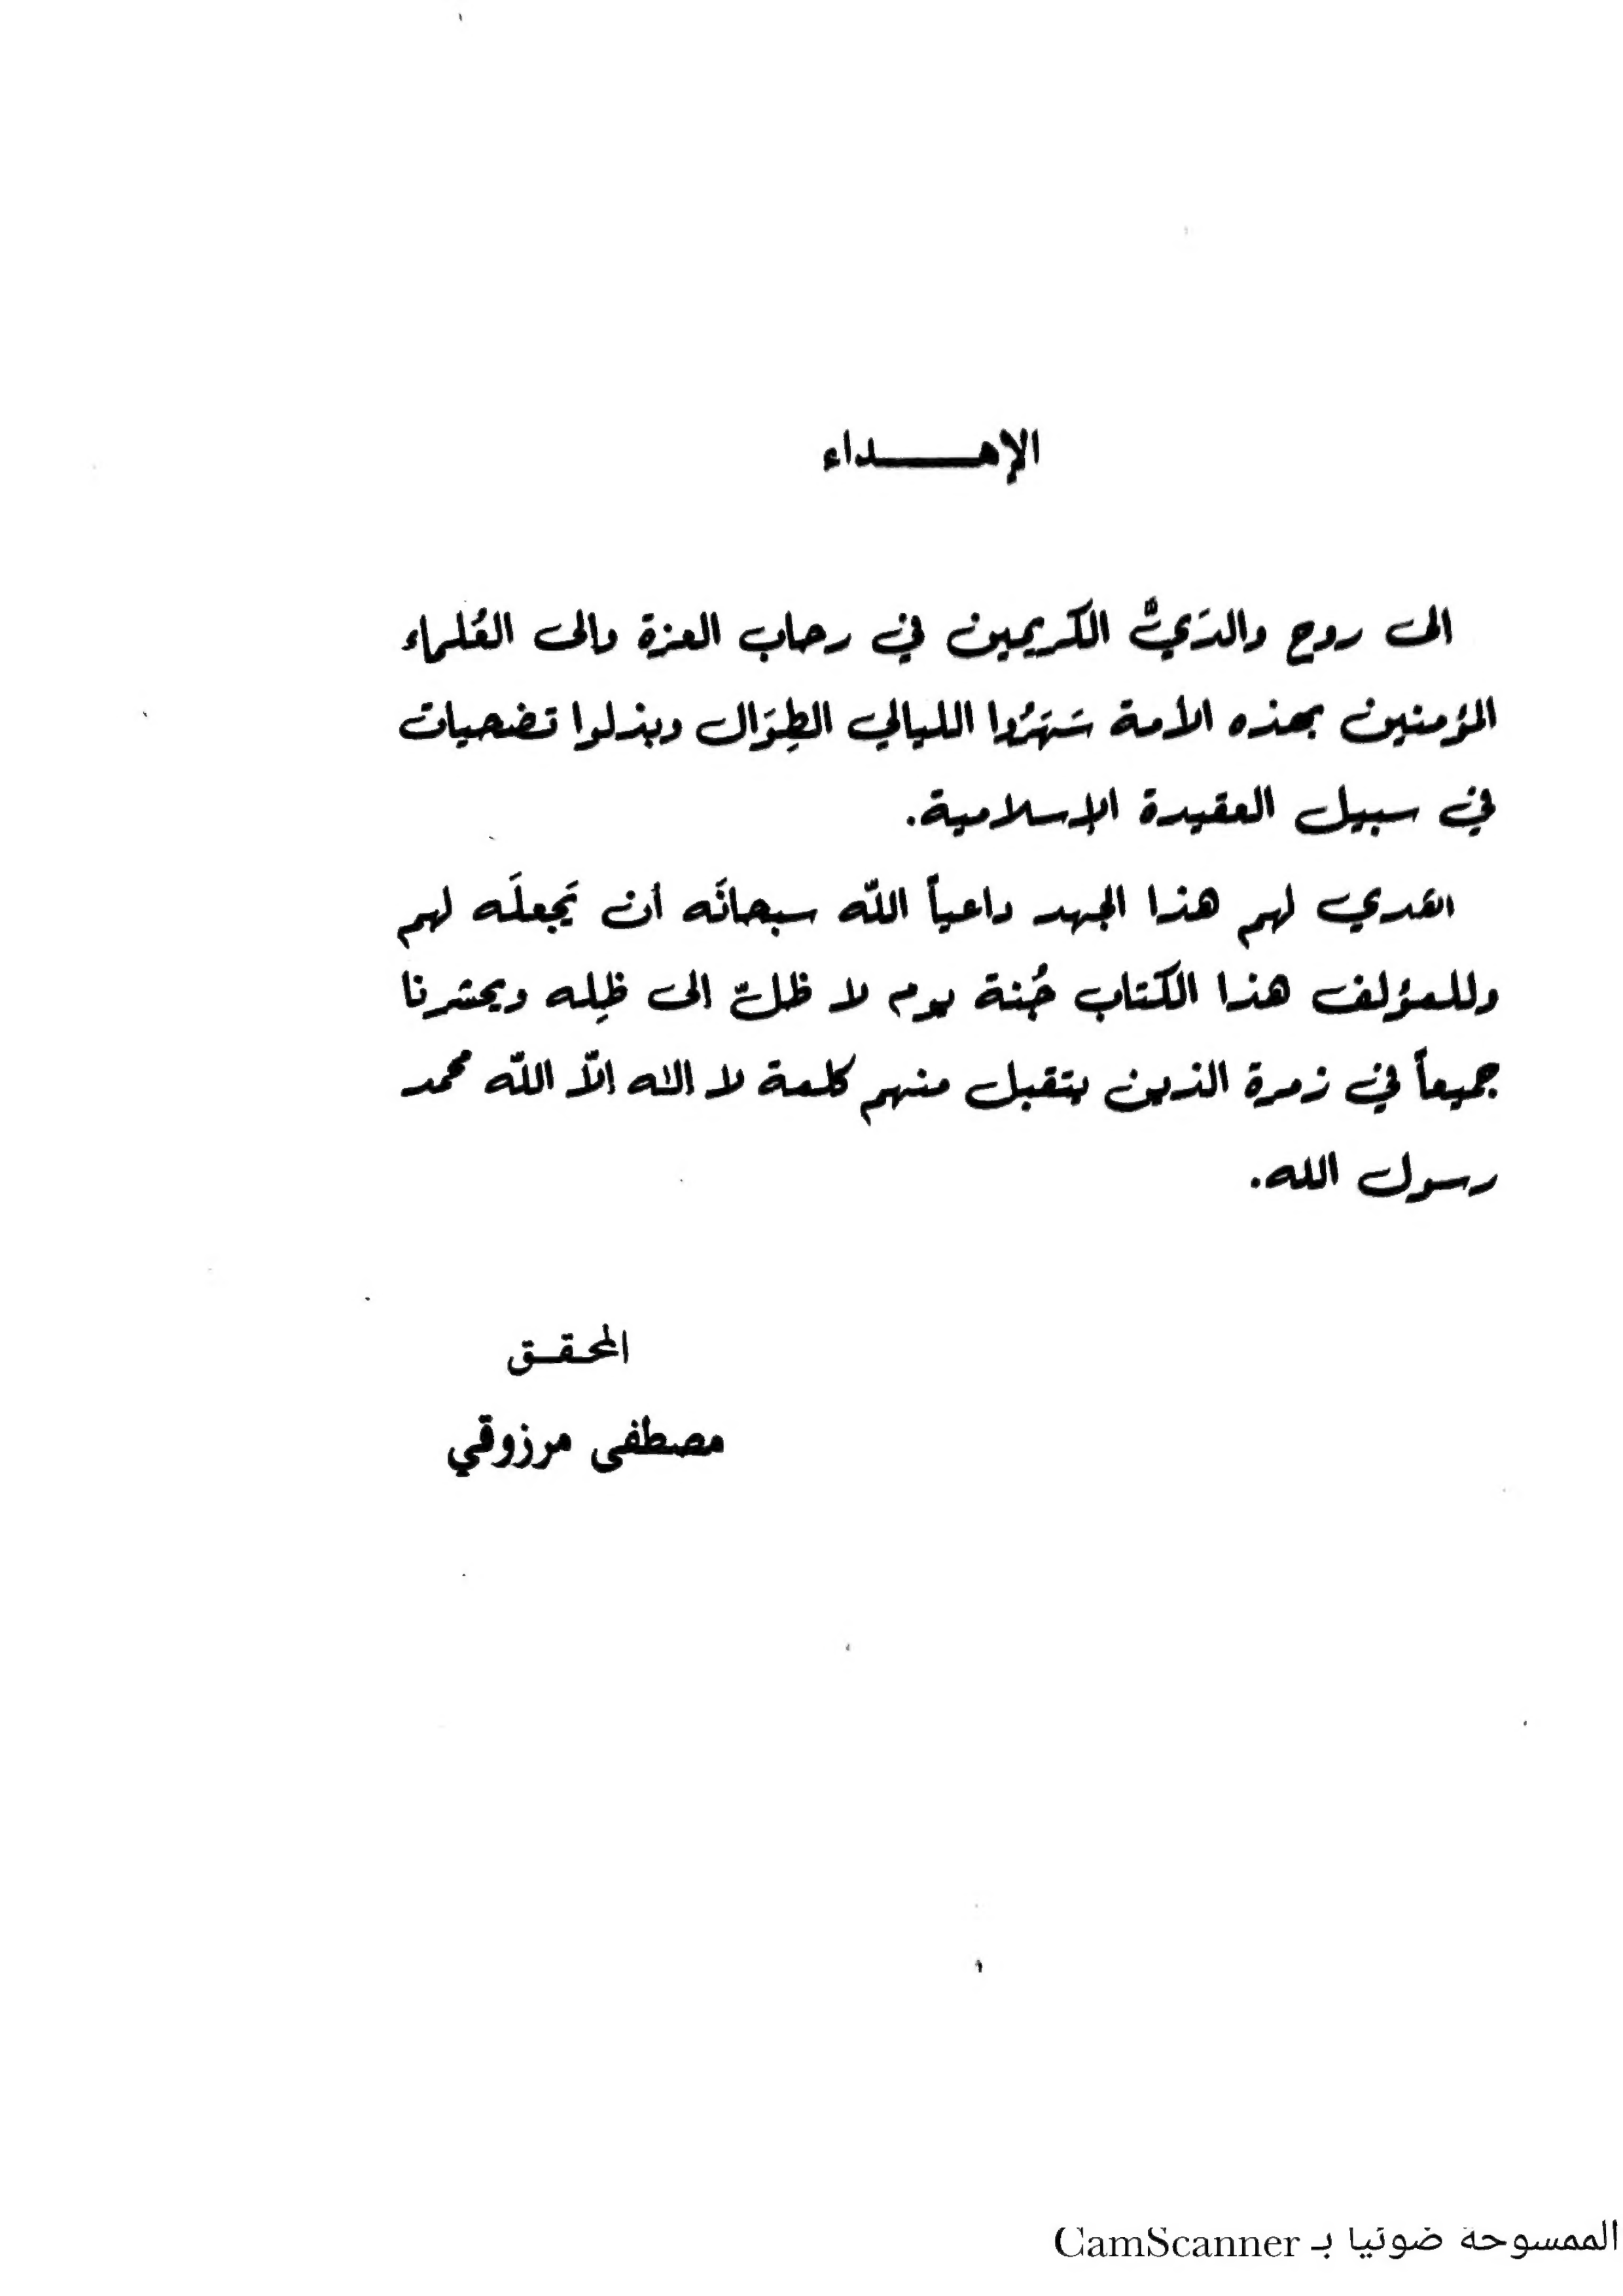 الإهـــــداء
الى روح والدَيَّ الكريمين في رحاب العزة والى العُلماء
المؤمنين بهذه الأمة سَهَرُوا الليالي الطِوَال وبذلوا تضحيات
في سبيل العقيدة الإسلامية.
اهدي لهم هذا الجهد داعياً اللّه سبحانَه أن يَجعلَه لهم
وللمؤلف هذا الكتاب جُنة يوم لا ظلّ الى ظِله ويحشرنا
جميعاً في زمرة الذين يتقبل منهم كلمة لا الاه الاّ اللّه محمد
رسول الله.
المحقـق
مصطفى مرزوقي
الممسوحة ضوئيا بـ CamScanner